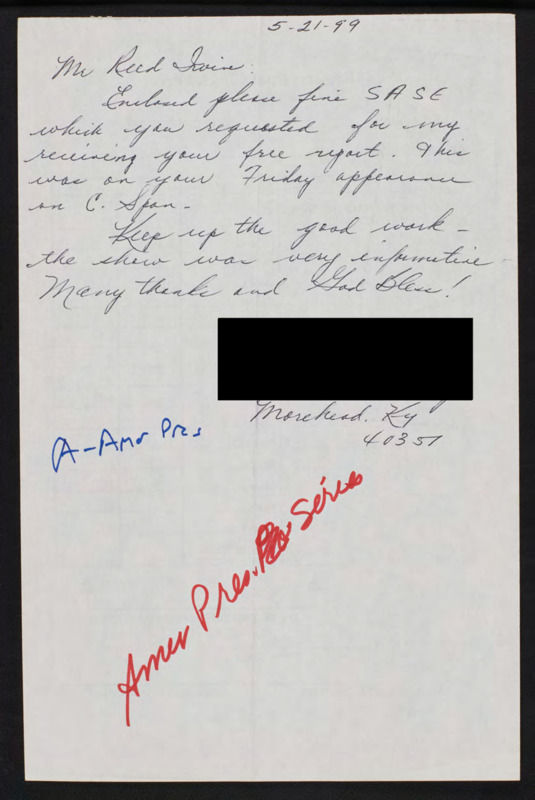 5-21-99
Mr Reed Irvine:
Enclosed please fine SASE
which you requested for my
receiving your free report. This
was on your Friday appearance
on C. Span-
Keep up the good work-
the show was very informative
Many thanks and God Bless!
Morehead, Ky
40351
A-Amer Pres
Amer Pres. Series